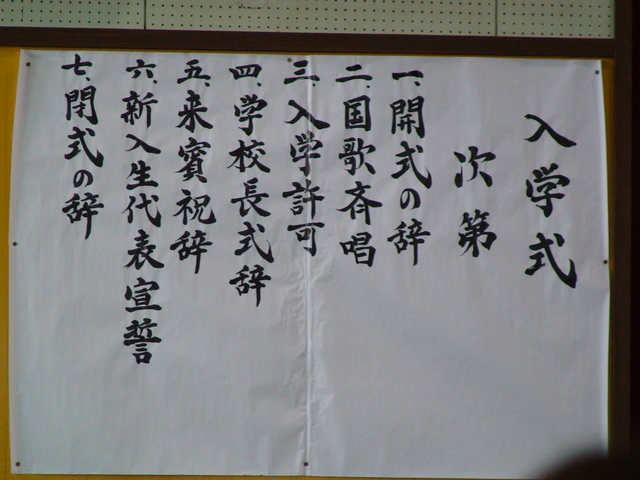 入学式
次第
一、開式の辞
二、国歌斉唱
三、入学許可
四、学校長式辞
五、来賓祝辞
六、新入生代表宣誓
七、閉式の辞